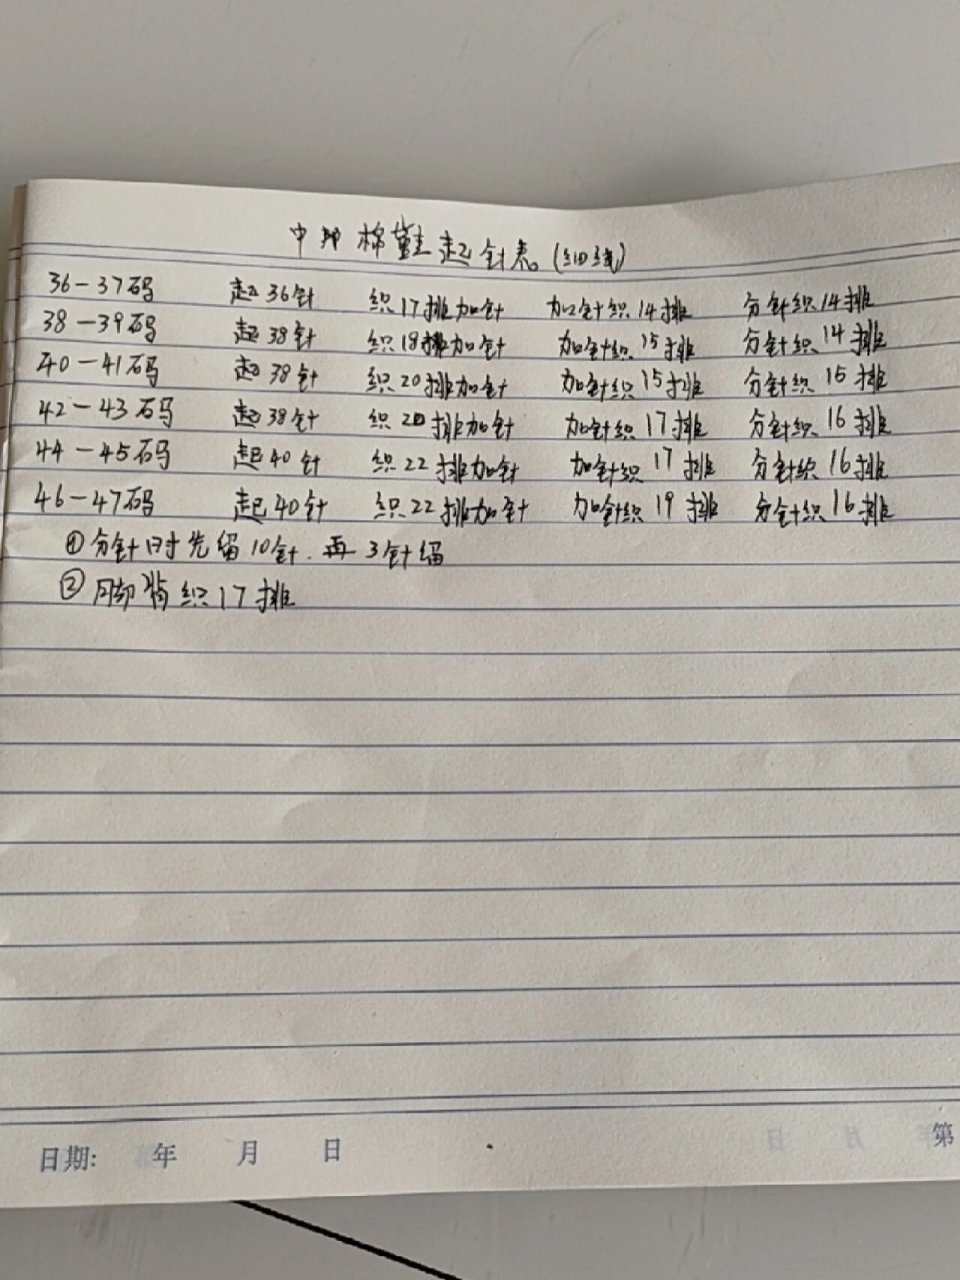 中邦棉鞋起针表(细线)
36-37码 起36针 织17排加针 加针织14排 分针织14排
38-39码 起38针 织18排加针 加针织15排 分针织14排
40-41码 起38针 织20排加针 加针织15排 分针织15排
42-43码 起38针 织20排加针 加针织17排 分针织16排
44-45码 起40针 织22排加针 加针织17排 分针织16排
46-47码 起40针 织22排加针 加针织19排 分针织16排
①分针时先留10针.再3针留
②脚背织17排
日期: 年 月 日 第